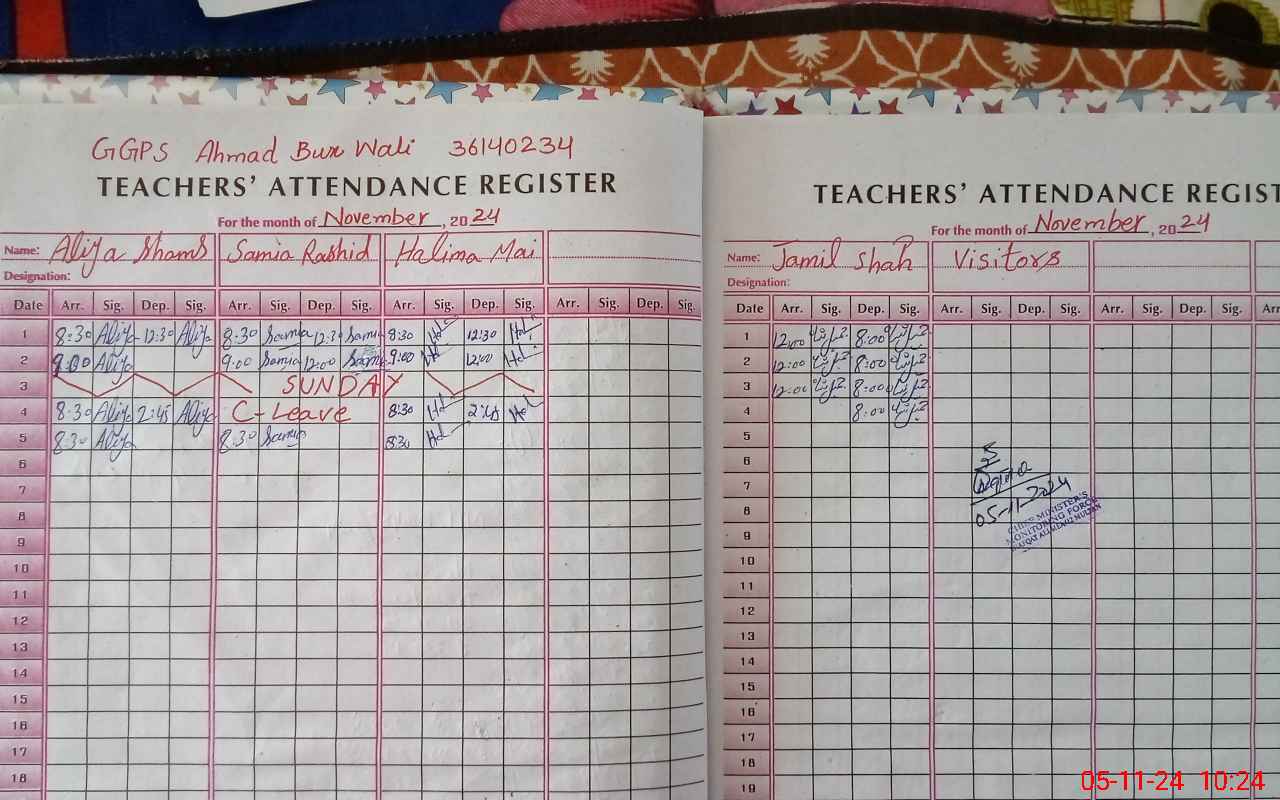 GGPS Ahmad Bux Wali 36140234
TEACHERS' ATTENDANCE REGISTER
For the month of November, 2024
Name: Aliya Shams Samia Rashid Halima Mai
Designation:
Date Arr. Sig. Dep. Sig. Arr. Sig. Dep. Sig. Arr. Sig. Dep. Sig. Arr. Sig. Dep. Sig.
1 8:30 Aliya 12:30 Aliya 8:30 Samia 12:30 Samia 8:30 12:30
2 9:00 Aliya 9:00 Samia 12:00 Samia 9:00 12:00
3 SUNDAY
4 8:30 Aliya 2:45 Aliya C-Leave 8:30 2:45
5 8:30 Aliya 8:30 Samia 8:30
6
7
8
9
10
11
12
13
14
15
16
17
18
TEACHERS' ATTENDANCE REGIST
For the month of November, 2024
Name: Jamil Shah Visitors
Designation:
Date Arr. Sig. Dep. Sig. Arr. Sig. Dep. Sig. Arr. Sig. Dep. Sig. Arr.
1 12:00 8:00
2 12:00 8:00
3 12:00 8:00
4 8:00
5
6
7
8 05-11-2024
CHIEF MINISTER'S
MONITORING FORCE
9
10
11
12
13
14
15
16
17
18
19
05-11-24 10:24